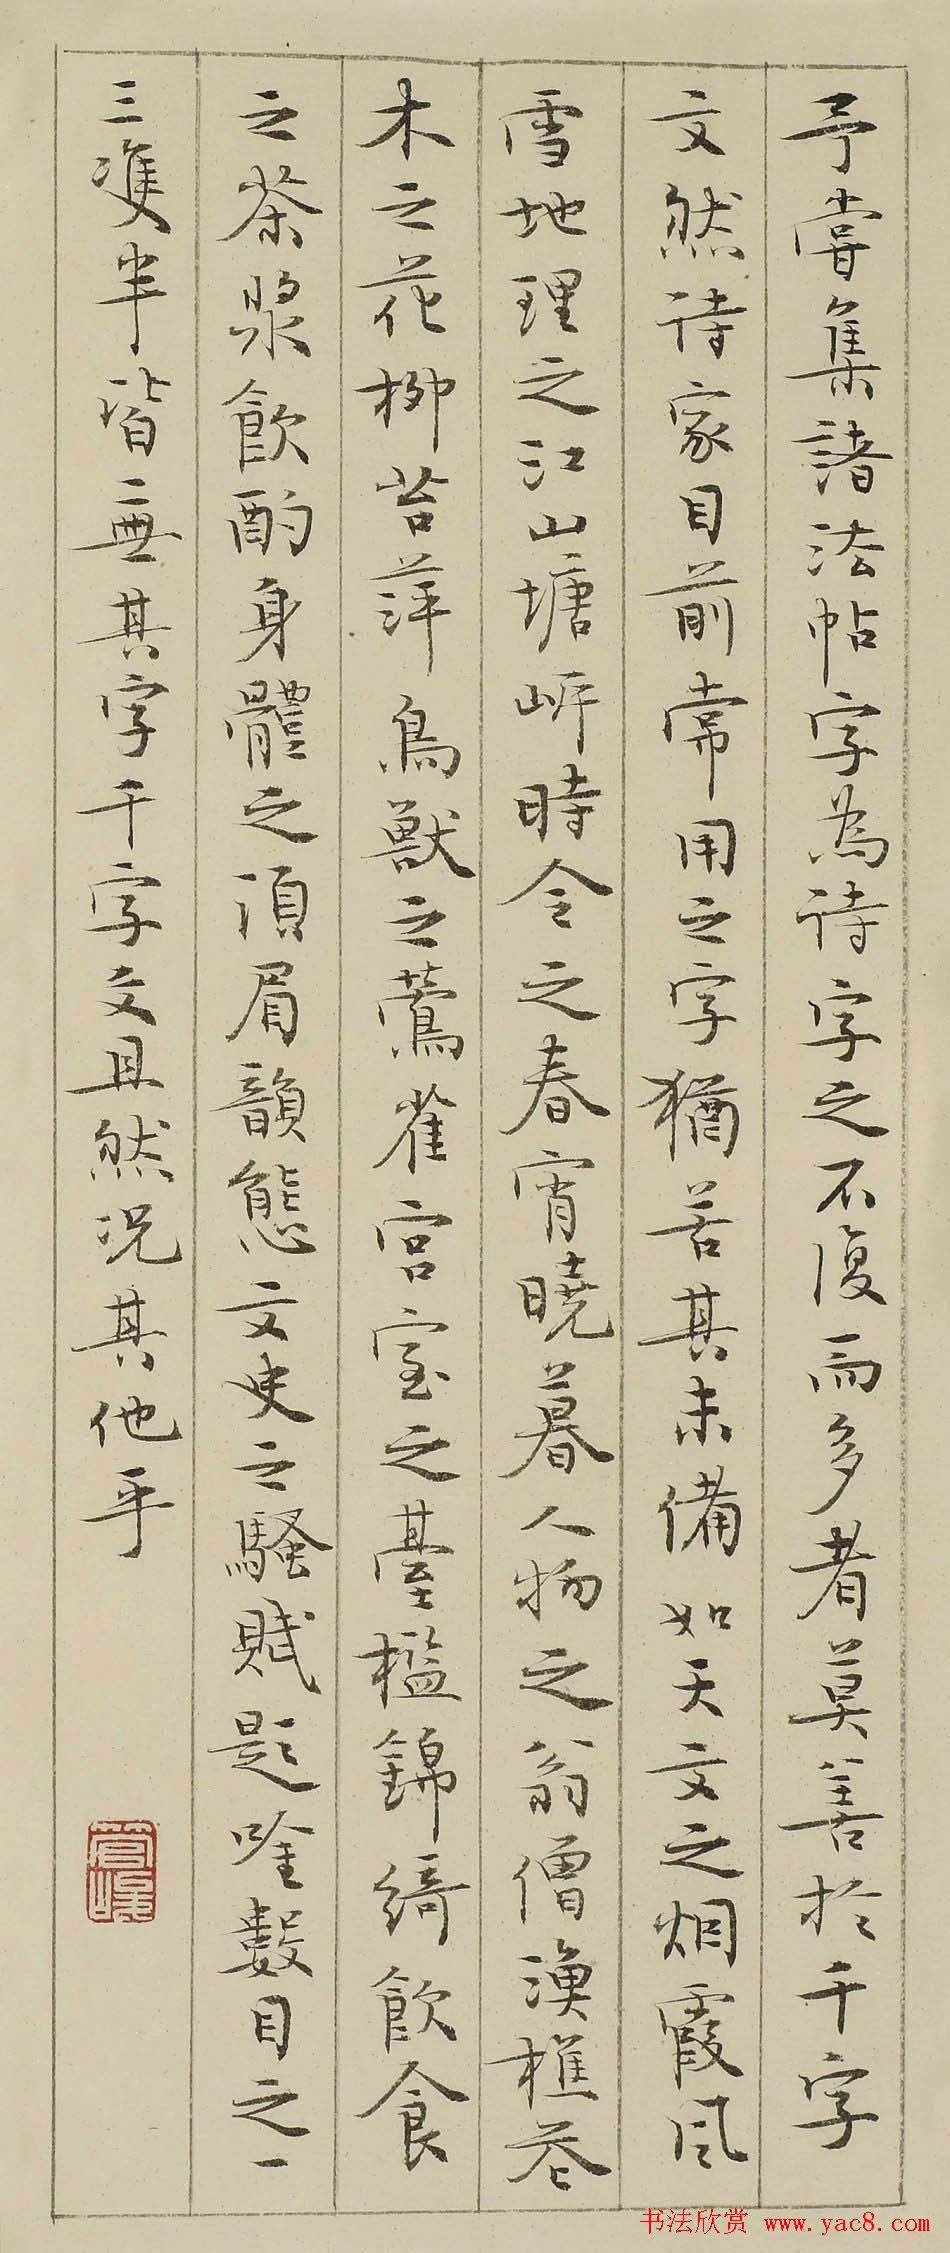 予嘗集諸法帖字為詩字之不復而多者莫善於千字
文然詩家目前常用之字猶苦其未備如天文之烟霞風
雪地理之江山塘岸時令之春宵曉暮人物之翁僧漁樵草
木之花柳苔萍鳥獸之鶯雀宮室之臺檻錦綺飲食
之茶漿飲酌身體之須眉韻態文史之騷賦題唫數目之一
三雙半皆無其字千字文且然況其他乎
书法欣赏 www.yac8.com